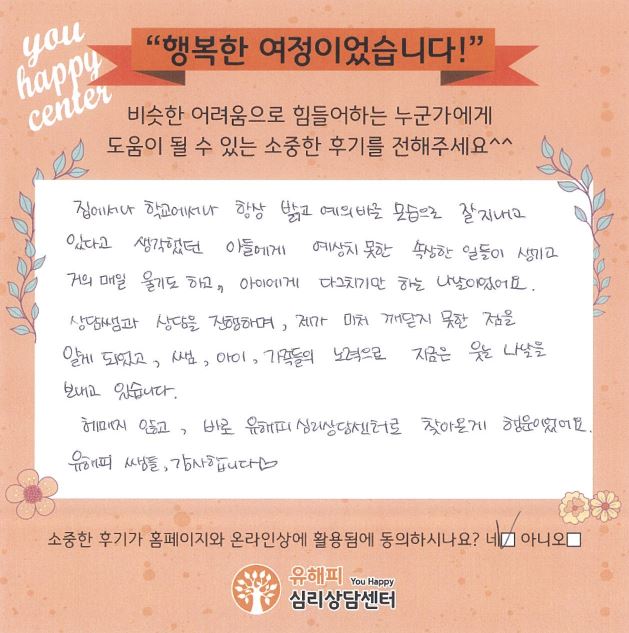 you
happy
center
“행복한 여정이었습니다!”
비슷한 어려움으로 힘들어하는 누군가에게
도움이 될 수 있는 소중한 후기를 전해주세요^^
집에서나 학교에서나 항상 밝고 예의바른 모습으로 잘 지내고
있다고 생각했던 아들에게 예상치 못한 속상한 일들이 생기고
거의 매일 울기도 하고, 아이에게 다그치기만 하는 나날이었어요.
상담쌤과 상담을 진행하며, 제가 미처 깨닫지 못한 점을
알게 되었고, 쌤, 아이, 가족들의 노력으로 지금은 웃는 나날을
보내고 있습니다.
헤매지 않고, 바로 유해피심리상담센터로 찾아온게 행운이었어요.
유해피 쌤들, 감사합니다♡
소중한 후기가 홈페이지와 온라인상에 활용됨에 동의하시나요? 네☑ 아니오□
유해피 You Happy
심리상담센터